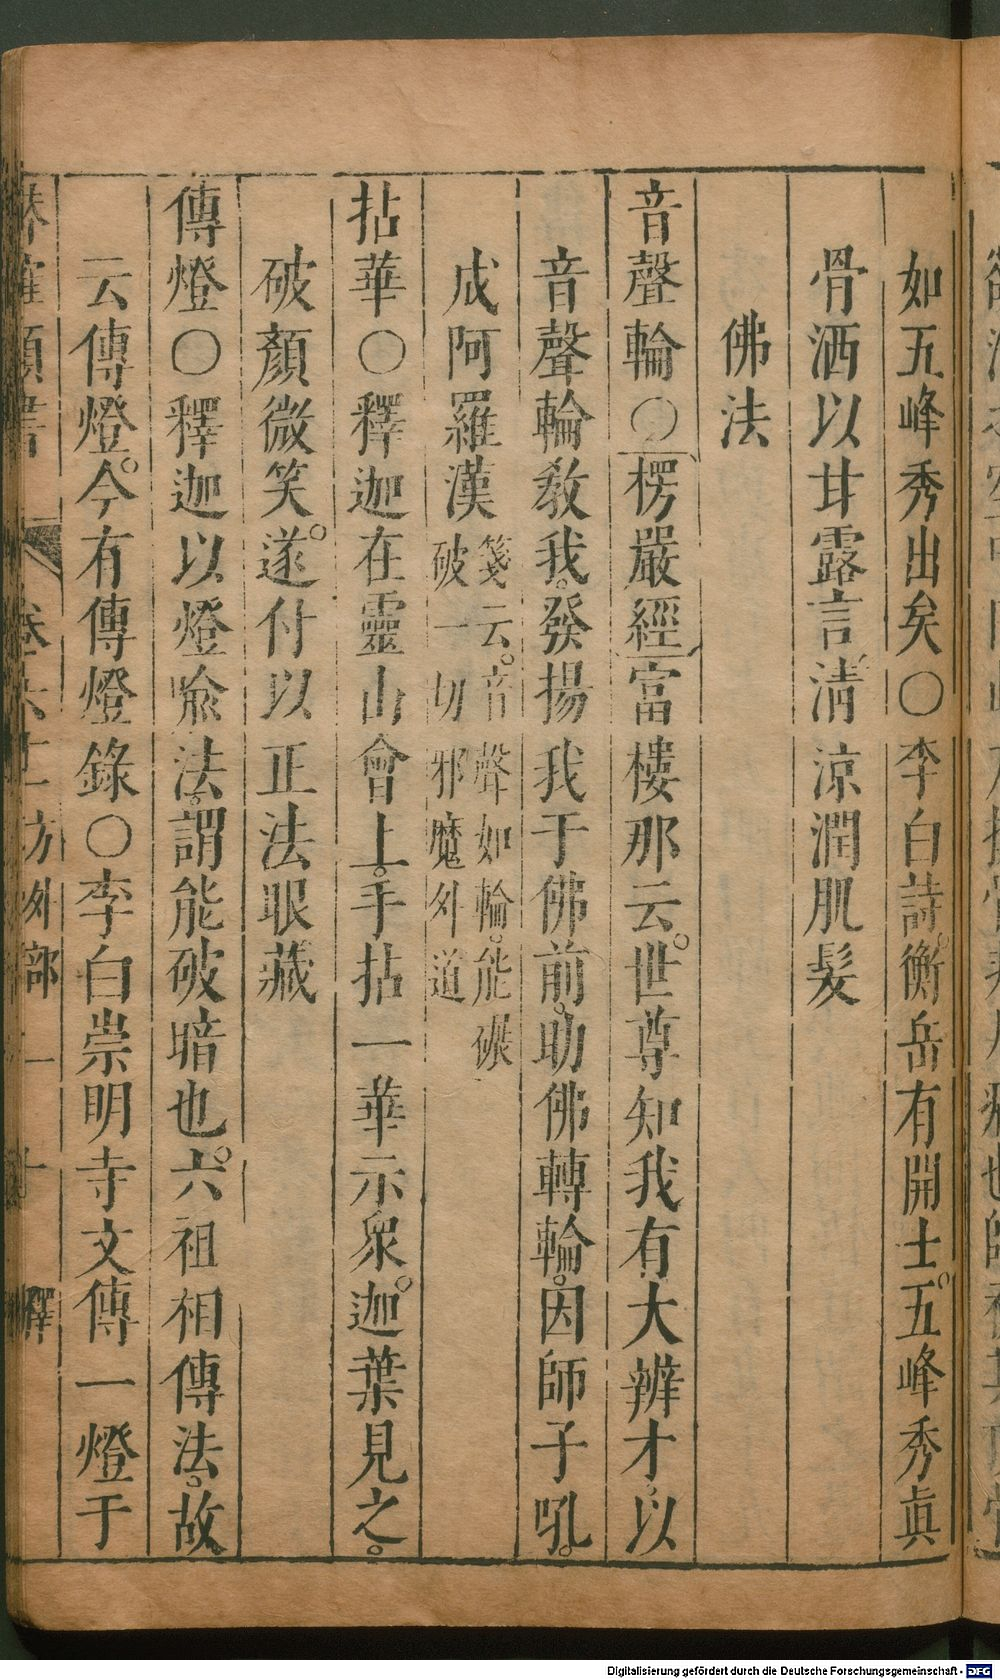 如五峰秀出矣〇李白詩。衡岳有開士。五峰秀眞
骨洒以甘露言清涼潤肌髮
佛法
音聲輪〇楞嚴經富樓那云。世尊知我有大辨才。以
音聲輪敎我。發揚我于佛前。助佛轉輪。因師子吼。
成阿羅漢
箋云。音聲如輪。能碾
破一切邪魔外道
拈華〇釋迦在靈山會上。手拈一華示衆。迦葉見之。
破顏微笑。遂付以正法眼藏
傳燈〇釋迦以燈喩法。謂能破暗也。六祖相傳法。故
云傳燈。今有傳燈錄〇李白崇明寺文傳一燈于
類書 卷 方外部 一 十 釋
Digitalisierung gefördert durch die Deutsche Forschungsgemeinschaft - DFG